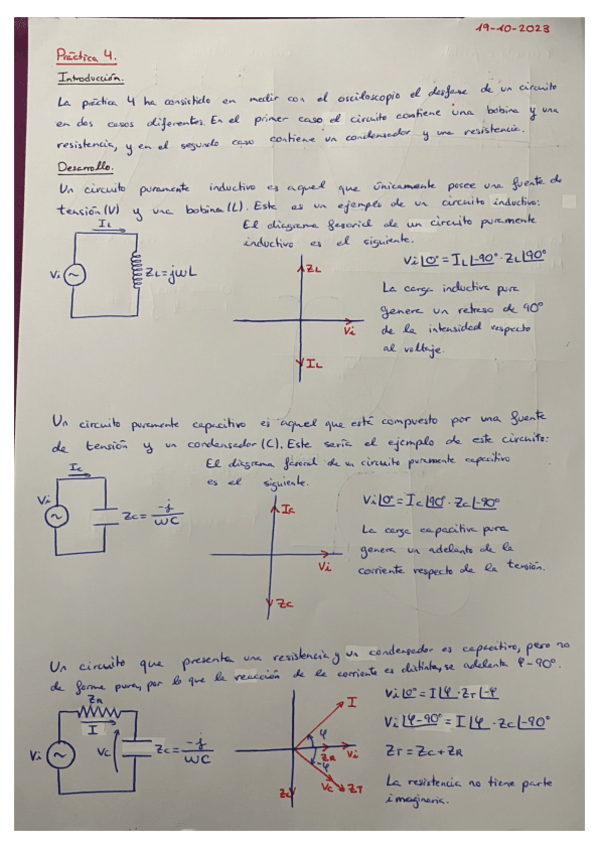 19-10-2023
Práctica 4.
Introducción.
La páctica 4 ha consistido en medir con el osciloscopio el desfase de un circuito
en dos casos diferentes. En el primer caso el circuito contiene una bobina y una
resistencia, y en el segundo caso contiene un condensador y una resistencia.
Desarrollo.
Un circuito puramente inductivo es aquel que únicamente posee una fuente de
tensión (V) y una bobina (L). Este es un ejemplo de un circuito inductivo:
El diagrama fasorial de un circuito puramente
inductivo es el siguiente.
IL
Vi
ZL=jωL
ZL
Vi
IL
Vi∠0° = IL∠-90° · ZL∠90°
La carga inductiva pura
genera un retraso de 90°
de la intensidad respecto
al voltaje.
Un circuito puramente capacitivo es aquel que está compuesto por una fuente
de tensión y un condensador (C). Este sería el ejemplo de este circuito:
El diagrama fasorial de un circuito puramente capacitivo
es el siguiente.
Ic
Vi
Zc = -j/ωC
Ic
Vi
Zc
Vi∠0° = Ic∠90° · Zc∠-90°
La carga capacitiva pura
genera un adelanto de la
corriente respecto de la tensión.
Un circuito que presenta una resistencia y un condensador es capacitivo, pero no
de forma pura, por lo que la reacción de la corriente es distinta, se adelanta φ-90°.
ZR
I
Vi
Vc
Zc = -j/ωC
I
φ
Vi
ZR
-φ
Zc
Vc
ZT
Vi∠0° = I∠φ · ZT∠-φ
Vi∠φ-90° = I∠φ · Zc∠-90°
ZT = Zc + ZR
La resistencia no tiene parte
imaginaria.